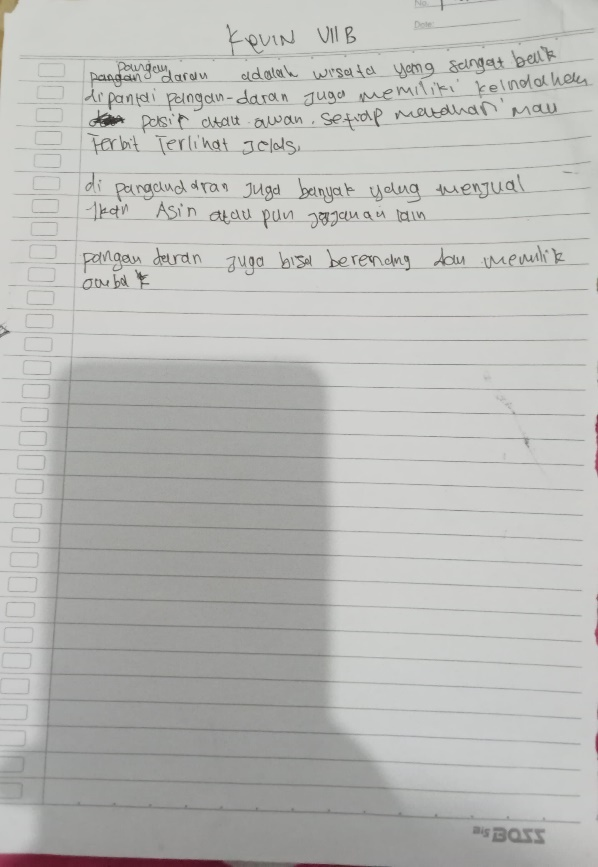 No:
Date:
Kevin VII B
pangan
pangan daran adalah wisata yang sangat baik
di pantai pangan-daran juga memiliki keindahan
pasir atau awan. setiap matahari mau
Terbit Terlihat Jelas.
di pangandaran Juga banyak yang menjual
Ikan Asin atau pun jajanan lain
pangan daran Juga bisa berenang dan memilik
ombak
BOSS